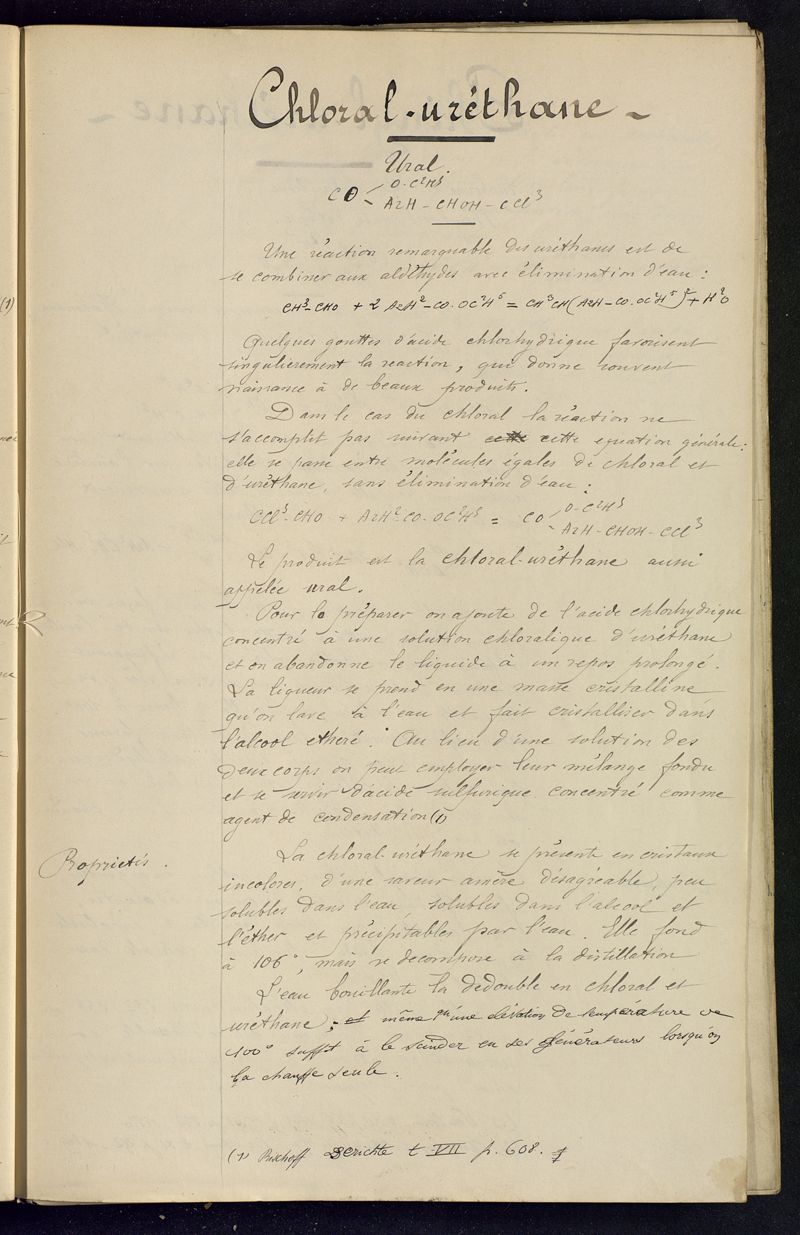 Chloral-uréthane -
Ural.
O-C²H⁵
CO
AzH - CHOH - CCl³
Une réaction remarquable des uréthanes est de
se combiner aux aldéhydes avec élimination d'eau :
CH³-CHO + 2 AzH²-CO.OC²H⁵ = CH³CH(AzH-CO.OC²H⁵)² + H²O
Quelques gouttes d'acide chlorhydrique favorisent
singulièrement la réaction, qui donne souvent
naissance à de beaux produits.
Dans le cas du chloral la réaction ne
s'accomplit pas suivant cette equation générale :
elle se passe entre molécules égales de chloral et
d'uréthane, sans élimination d'eau :
O-C²H⁵
CCl³-CHO + AzH²-CO-OC²H⁵ = CO
AzH-CHOH-CCl³
Le produit est la chloral-uréthane aussi
appelée ural.
Pour le préparer on ajoute de l'acide chlorhydrique
concentré à une solution chloralique d'uréthane
et on abandonne le liquide à un repos prolongé.
La liqueur se prend en une masse cristalline
qu'on lave à l'eau et fait cristalliser dans
l'alcool etheré. Au lieu d'une solution des
deux corps on peut employer leur mélange fondu
et se servir d'acide sulfurique concentré comme
agent de condensation (1)
Proprietés.
La chloral-uréthane se présente en cristaux
incolores, d'une saveur amère désagréable, peu
solubles dans l'eau, solubles dans l'alcool et
l'éther et précipitables par l'eau. Elle fond
à 106°, mais se decompose à la distillation
L'eau bouillante la dedouble en chloral et
uréthane ; et même qu'une elévation de température de
100° suffit à le scinder en ses générateurs lorsqu'on
la chauffe seule.
(1) Bischoff Berichte t VII p. 608.
(1)